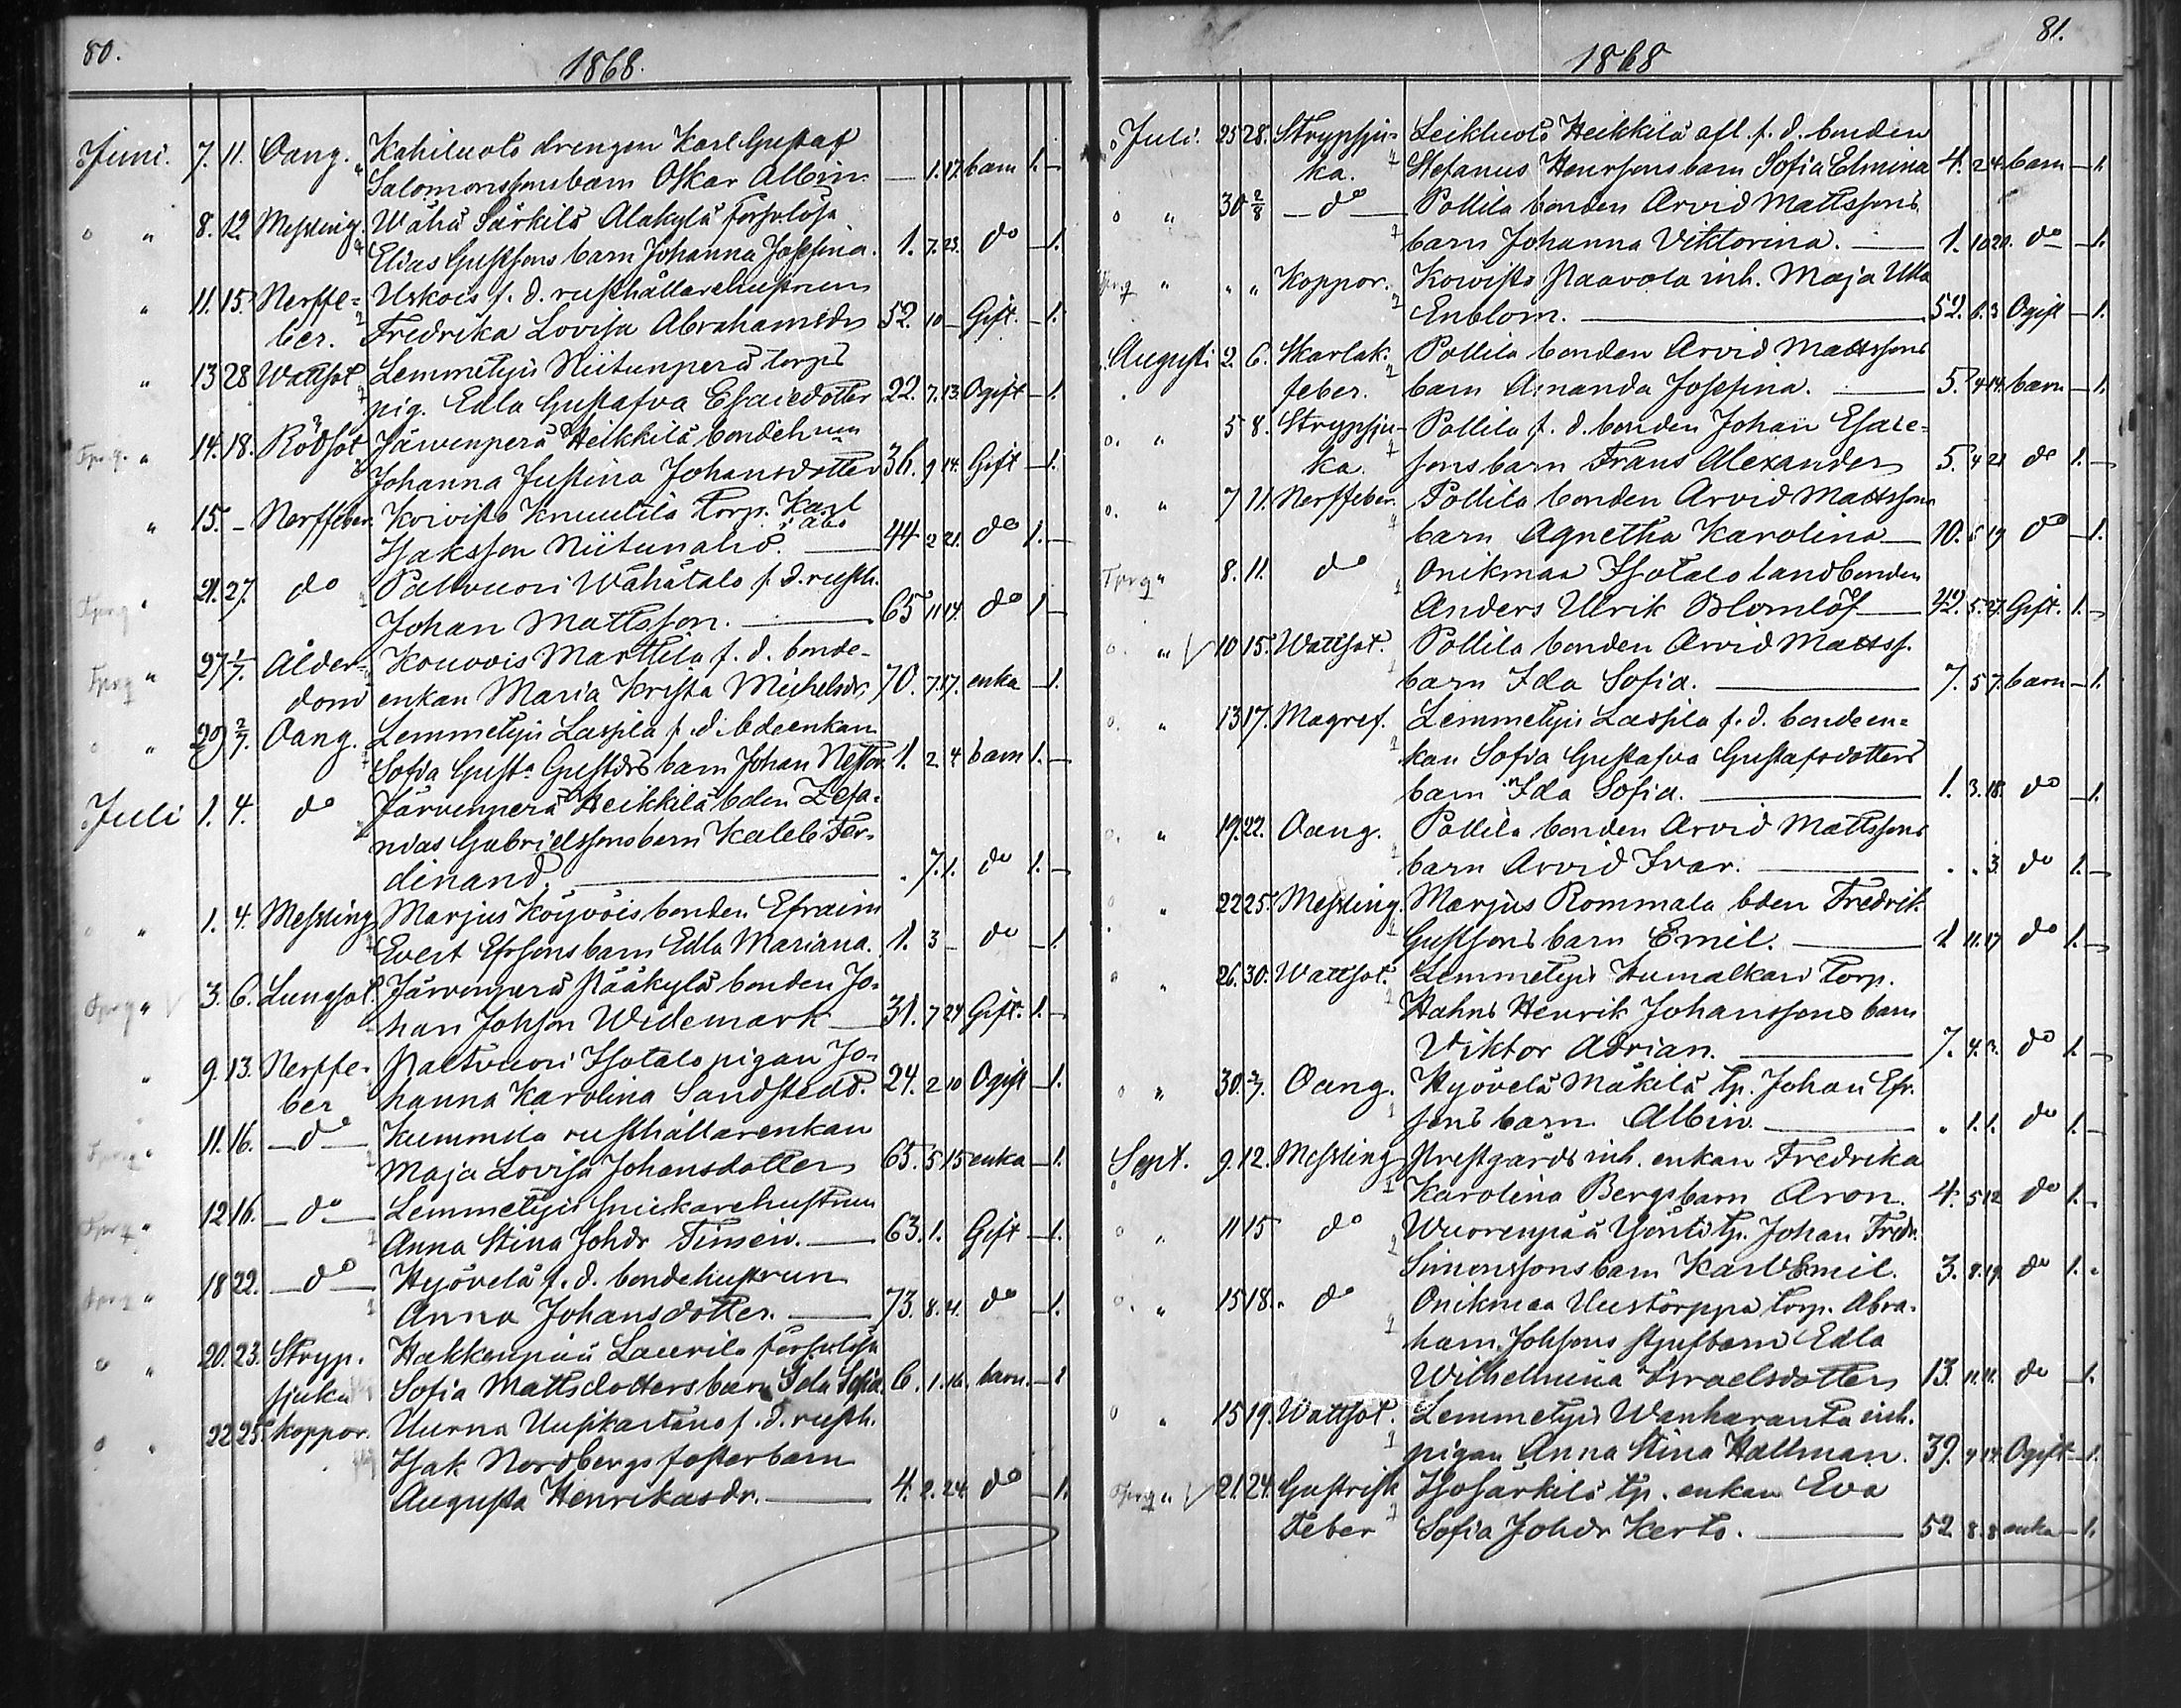 80.
1868.
Juni. 7. 11. Oang. Kahiluoto drengen Karl Gustaf
Salomonssons barn Oskar Albin. — 1. 17. barn 1. —
" 8. 12. Messling. Wähä Särkilä Alakylä
Elias Gustssons barn Johanna Josefina. 1. 7. 23. do — 1.
" 11. 15. Nerffe- Uskois f. d. rusthållarehustrun
ber. Fredrika Lovisa Abrahamsdr 52. 10 — Gift. — 1.
" 13 28 Wattsot Lemmetyis Niitunperä torps
pig. Edla Gustafva Esaiedotter 22. 7. 13. Ogift — 1.
" 14. 18. Rödsot Järvenperä Heikkilä
Johanna Justina Johansdotter 36. 9 14. Gift — 1.
" 15. — Nerffeber. Koivisto Knuutila Torp. Karl
i Åbo
Isaksson Niitunaho. — 44 2 21. do 1. —
" 21. 27. do Paltvuori Wähätalo f. d. rusth.
Johan Mattsson. — 65 11 14. do 1 —
" 27 1/7. Ålder- Kouvois Marttila f. d. bonde-
dom enkan Maria Krista Michelsdr 70. 7. 17. enka — 1.
" 29 2/7. Oang. Lemmetyis Lassila f. d. bdeenkan
Sofia Gusta Gustdrs barn Johan Nestor 1. 2 4 barn 1. —
Juli 1. 4. do Järvenperä Heikkilä bden Zefa-
nias Gabrielssons barn Kaleb Fer-
dinand. — . 7. 1. do 1. —
" 1. 4. Messling Marjus Köyvöis bonden Efraim
Evert Efrssons barn Edla Mariana. 1. 3 — do — 1
" 3. 6. Lungsot. Järvenperä Pääkylä bonden Jo-
han Johsson Widemark — 31. 7 24 Gift. 1. —
" 9. 13. Nerffe- Paltvuori Isotalo pigan Jo-
ber hanna Karolina Sandstedt. 24. 2 10 Ogift — 1.
" 11. 16. — do — Kummila rusthållarenkan
Maja Lovisa Johansdotter 65. 5 15 enka — 1.
" 12 16. — do — Lemmetyis Snickarehustrun
Anna Stina Johdr Timein. — 63. 1. Gift — 1.
" 18 22. — do — Hyövelä f. d. bondehustrun
Anna Johansdotter. — 73. 8. 21. do — 1.
" 20. 23. Stryp- Hakkenpää Laurila
sjuka Sofia Mattsdotters barn Ida Sofia 6. 1. 16. barn. — 1
" 22 25. Koppor. Uurna Uusikartano f. d. rusth.
Isak Nordbergs fosterbarn
Augusta Henriksdr. — 4. 2. 24. do — 1.
81.
1868
Juli. 25 28. Strypsju- Leikluoto Heikkilä afl. f. d. bonden
ka. Stefanus Henrssons barn Sofia Elmina 4. 2 4. barn — 1.
" 30 2/8 — do — Pollila bonden Arvid Mattssons
barn Johanna Viktorina. — 1. 10 20. do — 1.
" " " Koppor. Koivisto Paavola inh. Maja Ulla
Enblom. — 52. 6. 3 Ogift — 1.
Augusti 2. 6. Skarlak. Pollila bonden Arvid Mattssons
feber. barn Amanda Josefina. — 5. 4 14. barn — 1.
" 5 8. Strypsju- Pollila f. d. bonden Johan Esaie-
ka. sons barn Frans Alexander 5. 4 21 do 1. —
" 7 11. Nerffeber. Pollila bonden Arvid Mattssons
barn Agnetha Karolina — 10. 5 19 do — 1.
" 8. 11. do Onikmaa Isotalo landbonden
Anders Ulrik Blomlöf — 42. 5. 27. Gift. 1. —
" 10 15. Wattsot. Pollila bonden Arvid Mattss.
barn Ida Sofia. — 7. 5 7. barn — 1.
" 13 17. Magref. Lemmetyis Lassila f. d. bondeen-
kan Sofia Gustafva Gustafsdotters
barn Ida Sofia. — 1. 3. 18. do — 1.
" 19. 22. Oang. Pollila bonden Arvid Mattssons
barn Arvid Ivar. — . . 3. do 1. —
" 22 25. Messling. Marjus Rommala bden Fredrik
Gustssons barn Emil. — 1 11. 17 do 1. —
" 26. 30. Wattsot. Lemmetyis Humalkari Torp.
Hahns Henrik Johanssons barn
Viktor Adrian. — 7. 4. 3. do 1. —
" 30. Oang. Hyövelä Mäkilä tp. Johan Efr.
sons barn Albin — . 1. 1. do 1. —
Sept. 9. 12. Messling Prestgårds inh. enkan Fredrika
Karolina Bergs barn Aron. 4. 5 12 do 1. —
" 11 15 do Wuorenpää Yöntilä tp. Johan Fredr.
Simonssons barn Karl Emil. 3. 8. 19. do 1. —
" 15 18. do Onikmaa Uustorppa Torp. Abra-
ham Johssons styfbarn Edla
Wilhelmina Israelsdotter 13. 11. 11. do — 1.
" 15 19. Wattsot. Lemmetyis Wanharanta inh.
pigan Anna Stina Hallman. 39. 9 14. Ogift — 1.
" 21. 24. Gastrisk Isosärkilä tp. enkan Eva
Feber Sofia Johdr Kerto. — 52 8. 8 enka — 1.